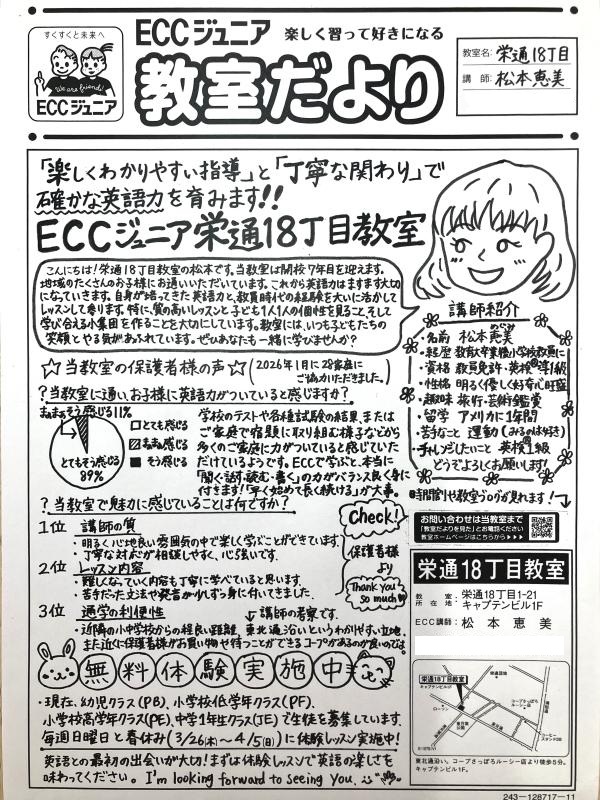 すくすくと未来へ
We are friend!
ECCジュニア
ECCジュニア 楽しく習って好きになる
教室だより
教室名: 栄通18丁目
講師: 松本恵美
「楽しくわかりやすい指導」と「丁寧な関わり」で
確かな英語力を育みます!!
ECCジュニア栄通18丁目教室
こんにちは!栄通18丁目教室の松本です。当教室は開校7年目を迎えます。
地域のたくさんのお子様にお通いいただいています。これから英語力はますます大切
になっていきます。自身が培ってきた英語力と、教員時代の経験を大いに活かして
レッスンして参ります。特に、質の高いレッスンと子ども1人1人の個性を見ること、そして
学び合える小集団を作ることを大切にしています。教室には、いつも子どもたちの
笑顔とやる気があふれています。ぜひあなたも一緒に学びませんか?
講師紹介
・名前 松本恵美
・経歴 教育大卒業後小学校教員に
・資格 教員免許・英検®準1級
・性格 明るく優しく好奇心旺盛
・趣味 旅行・芸術鑑賞
・留学 アメリカに1年間
・苦手なこと 運動(みるのは好き)
・チャレンジしたいこと 英検®1級
どうぞよろしくお願いします!
☆当教室の保護者様の声☆(2026年1月に28家庭にご協力いただきました。)
?当教室に通い、お子様に英語力がついていると感じますか?
まあまあそう感じる11%
とてもそう感じる
89%
□とても感じる
▨まあまあ感じる
■そう感じる
学校のテストや各種試験の結果、または
ご家庭で宿題に取り組む様子などから
多くのご家庭に力がついていると感じていた
だけているようです。ECCで学ぶと、本当に
「聞く・話す・読む・書く」の力がバランス良く身に
付きます!「早く始めて長く続ける」が大事。
?当教室で魅力に感じていることは何ですか?
1位 講師の質
・明るく心地良い雰囲気の中で楽しく学ぶことができています。
・丁寧な対応が相談しやすく、心強いです。
2位 レッスン内容
・難しくなっていく内容も丁寧に学べていると思います。
・苦手だった文法や発音が少しずつ身に付いてきました。
3位 通学の利便性
↓講師の考察です.
・近隣の小中学校からの程良い距離、東北通沿いというわかりやすい立地、
また近くに保護者様がお買い物や待つことができるコープがあるのが良いのでは。
Check!
保護者様
より
Thank you
so much♡
時間割や教室ブログが見れます!
お問い合わせは当教室まで
「教室だよりを見た」とお電話ください
教室ホームページはこちらから▶▶▶
栄通18丁目教室
教室所在地: 栄通18丁目1-21
キャプテンビル1F
ECC講師: 松本恵美
栄通18丁目教室
キャプテンビル1F
ローソン
東北通沿い。コープさっぽろルーシー店より徒歩5分。
キャプテンビル1F。
無料体験実施中
・現在、幼児クラス(PB)、小学校低学年クラス(PF)、
小学校高学年クラス(PE)、中学1年生クラス(JE)で生徒を募集しています。
毎週日曜日と春休み(3/26(木)～4/5(日))に体験レッスン実施中!
英語との最初の出会いが大切!まずは体験レッスンで英語の楽しさを
味わってください。I'm looking forward to seeing you.
243-128717-11